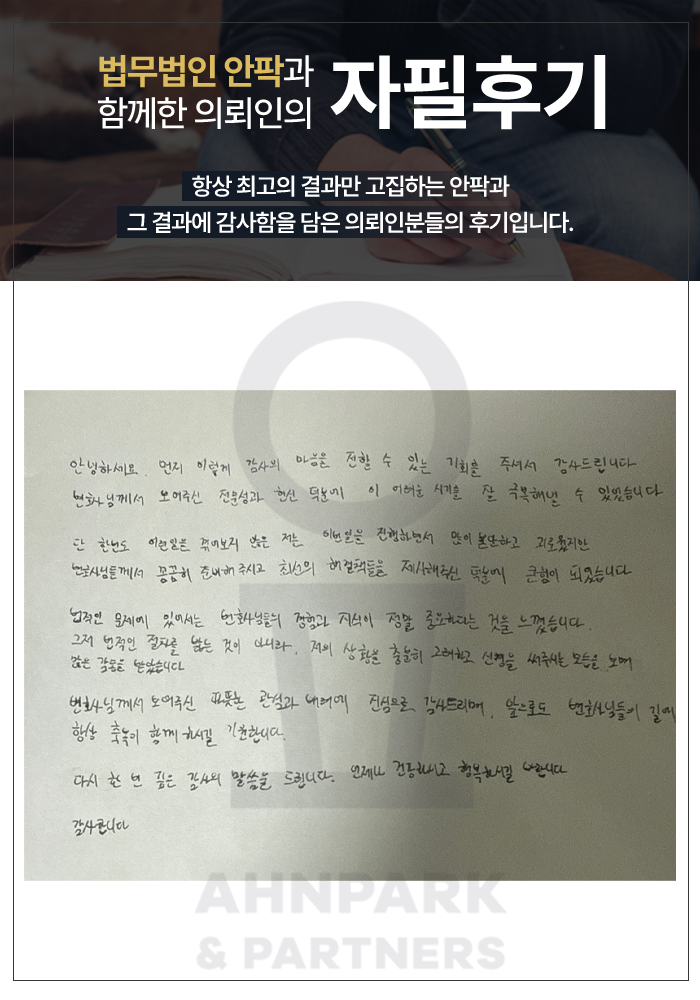 법무법인 안팍과
함께한 의뢰인의
자필후기
항상 최고의 결과만 고집하는 안팍과
그 결과에 감사함을 담은 의뢰인분들의 후기입니다.
안녕하세요. 먼저 이렇게 감사의 마음을 전할 수 있는 기회를 주셔서 감사드립니다
변호사님께서 보여주신 전문성과 헌신 덕분에 이 어려운 시기를 잘 극복해낼 수 있었습니다
단 한번도 이런일을 겪어보지 않은 저는 이번일을 진행하면서 많이 불안하고 괴로웠지만
변호사님들께서 꼼꼼히 준비해주시고 최선의 해결책들을 제시해주신 덕분에 큰힘이 되었습니다
법적인 문제에 있어서는 변호사님들의 경험과 지식이 정말 중요하다는 것을 느꼈습니다.
그저 법적인 절차를 밟는 것이 아니라, 저의 상황을 충분히 고려하고 신경을 써주시는 모습을 보며
많은 감동을 받았습니다
변호사님께서 보여주신 따뜻한 관심과 배려에 진심으로 감사드리며, 앞으로도 변호사님들의 길에
항상 축복이 함께 하시길 기원합니다.
다시 한 번 깊은 감사의 말씀을 드립니다. 언제나 건강하시고 행복하시길 바랍니다
감사합니다
AHNPARK
& PARTNERS